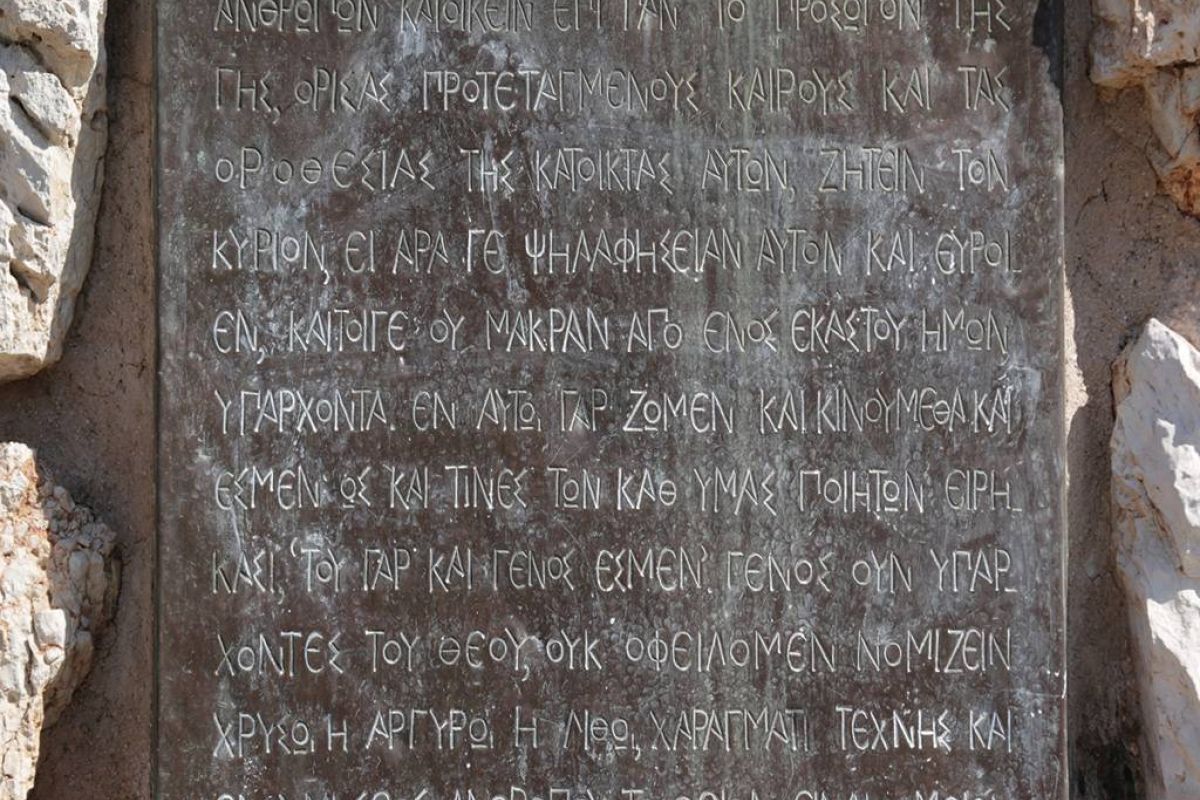 ΑΝΘΡΩΠΩΝ ΚΑΤΟΙΚΕΙΝ ΕΠΙ ΠΑΝ ΤΟ ΠΡΟΣΩΠΟΝ ΤΗΣ
ΓΗΣ, ΟΡΙΣΑΣ ΠΡΟΤΕΤΑΓΜΕΝΟΥΣ ΚΑΙΡΟΥΣ ΚΑΙ ΤΑΣ
ΟΡΟΘΕΣΙΑΣ ΤΗΣ ΚΑΤΟΙΚΤΑΣ ΑΥΤΩΝ, ΖΗΤΕΙΝ ΤΟΝ
ΚΥΡΙΟΝ, ΕΙ ΑΡΑ ΓΕ ΨΗΛΑΦΗΣΕΙΑΝ ΑΥΤΟΝ ΚΑΙ ΕΥΡΟΙ_
ΕΝ, ΚΑΙΤΟΙΓΕ ΟΥ ΜΑΚΡΑΝ ΑΠΟ ΕΝΟΣ ΕΚΑΣΤΟΥ ΗΜΩΝ
ΥΠΑΡΧΟΝΤΑ. ΕΝ ΑΥΤΩ, ΓΑΡ ΖΩΜΕΝ ΚΑΙ ΚΙΝΟΥΜΕΘΑ ΚΑΙ
ΕΣΜΕΝ ΩΣ ΚΑΙ ΤΙΝΕΣ ΤΩΝ ΚΑΘ ΥΜΑΣ ΠΟΙΗΤΩΝ ΕΙΡΗ_
ΚΑΣΙ, ‘ΤΟΥ ΓΑΡ ΚΑΙ ΓΕΝΟΣ ΕΣΜΕΝ’. ΓΕΝΟΣ ΟΥΝ ΥΠΑΡ_
ΧΟΝΤΕΣ ΤΟΥ ΘΕΟΥ, ΟΥΚ ΟΦΕΙΛΟΜΕΝ ΝΟΜΙΖΕΙΝ
ΧΡΥΣΩ, Η ΑΡΓΥΡΩ, Η ΛΙΘΩ, ΧΑΡΑΓΜΑΤΙ ΤΕΧΝΗΣ ΚΑΙ